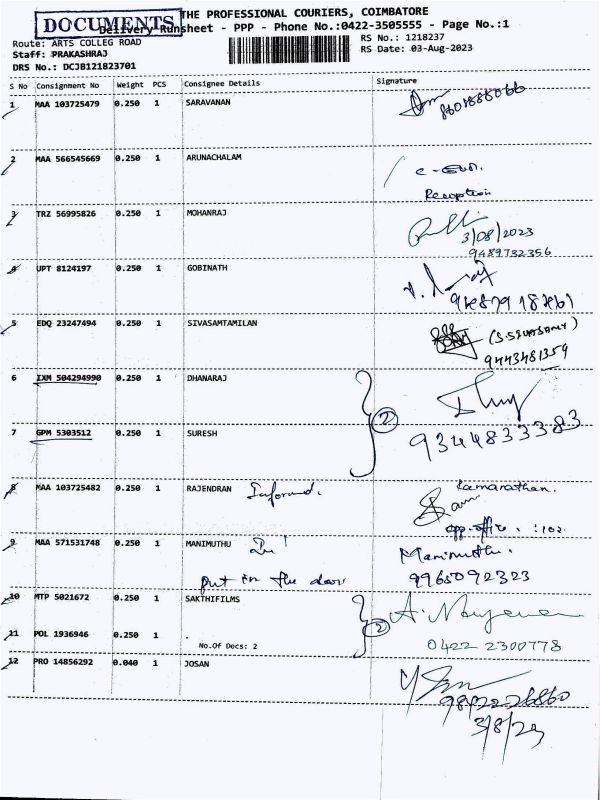 DOCUMENTS
THE PROFESSIONAL COURIERS, COIMBATORE
Delivery Runsheet - PPP - Phone No.:0422-3505555 - Page No.:1
Route: ARTS COLLEG ROAD
RS No.: 1218237
Staff: PRAKASHRAJ
RS Date: 03-Aug-2023
DRS No.: DCJB121823701
S No Consignment No Weight PCS Consignee Details Signature
1 MAA 103725479 0.250 1 SARAVANAN
2 MAA 566545669 0.250 1 ARUNACHALAM
Reception
3 TRZ 56995826 0.250 1 MOHANRAJ
3/08/2023
9489732356
4 UPT 8124197 0.250 1 GOBINATH
5 EDQ 23247494 0.250 1 SIVASAMTAMILAN
(S.SIVASAMY)
9443481359
6 IXM 504294990 0.250 1 DHANARAJ
2
7 GPM 5303512 0.250 1 SURESH
9344833383
8 MAA 103725482 0.250 1 RAJENDRAN Informed.
opp. office. :102.
9 MAA 571531748 0.250 1 MANIMUTHU
Manimuthu.
put in the door 9965092323
10 MTP 5021672 0.250 1 SAKTHIFILMS
2
11 POL 1936946 0.250 1 .
No.Of Docs: 2
0422 2300778
12 PRO 14856292 0.040 1 JOSAN
3/8/23